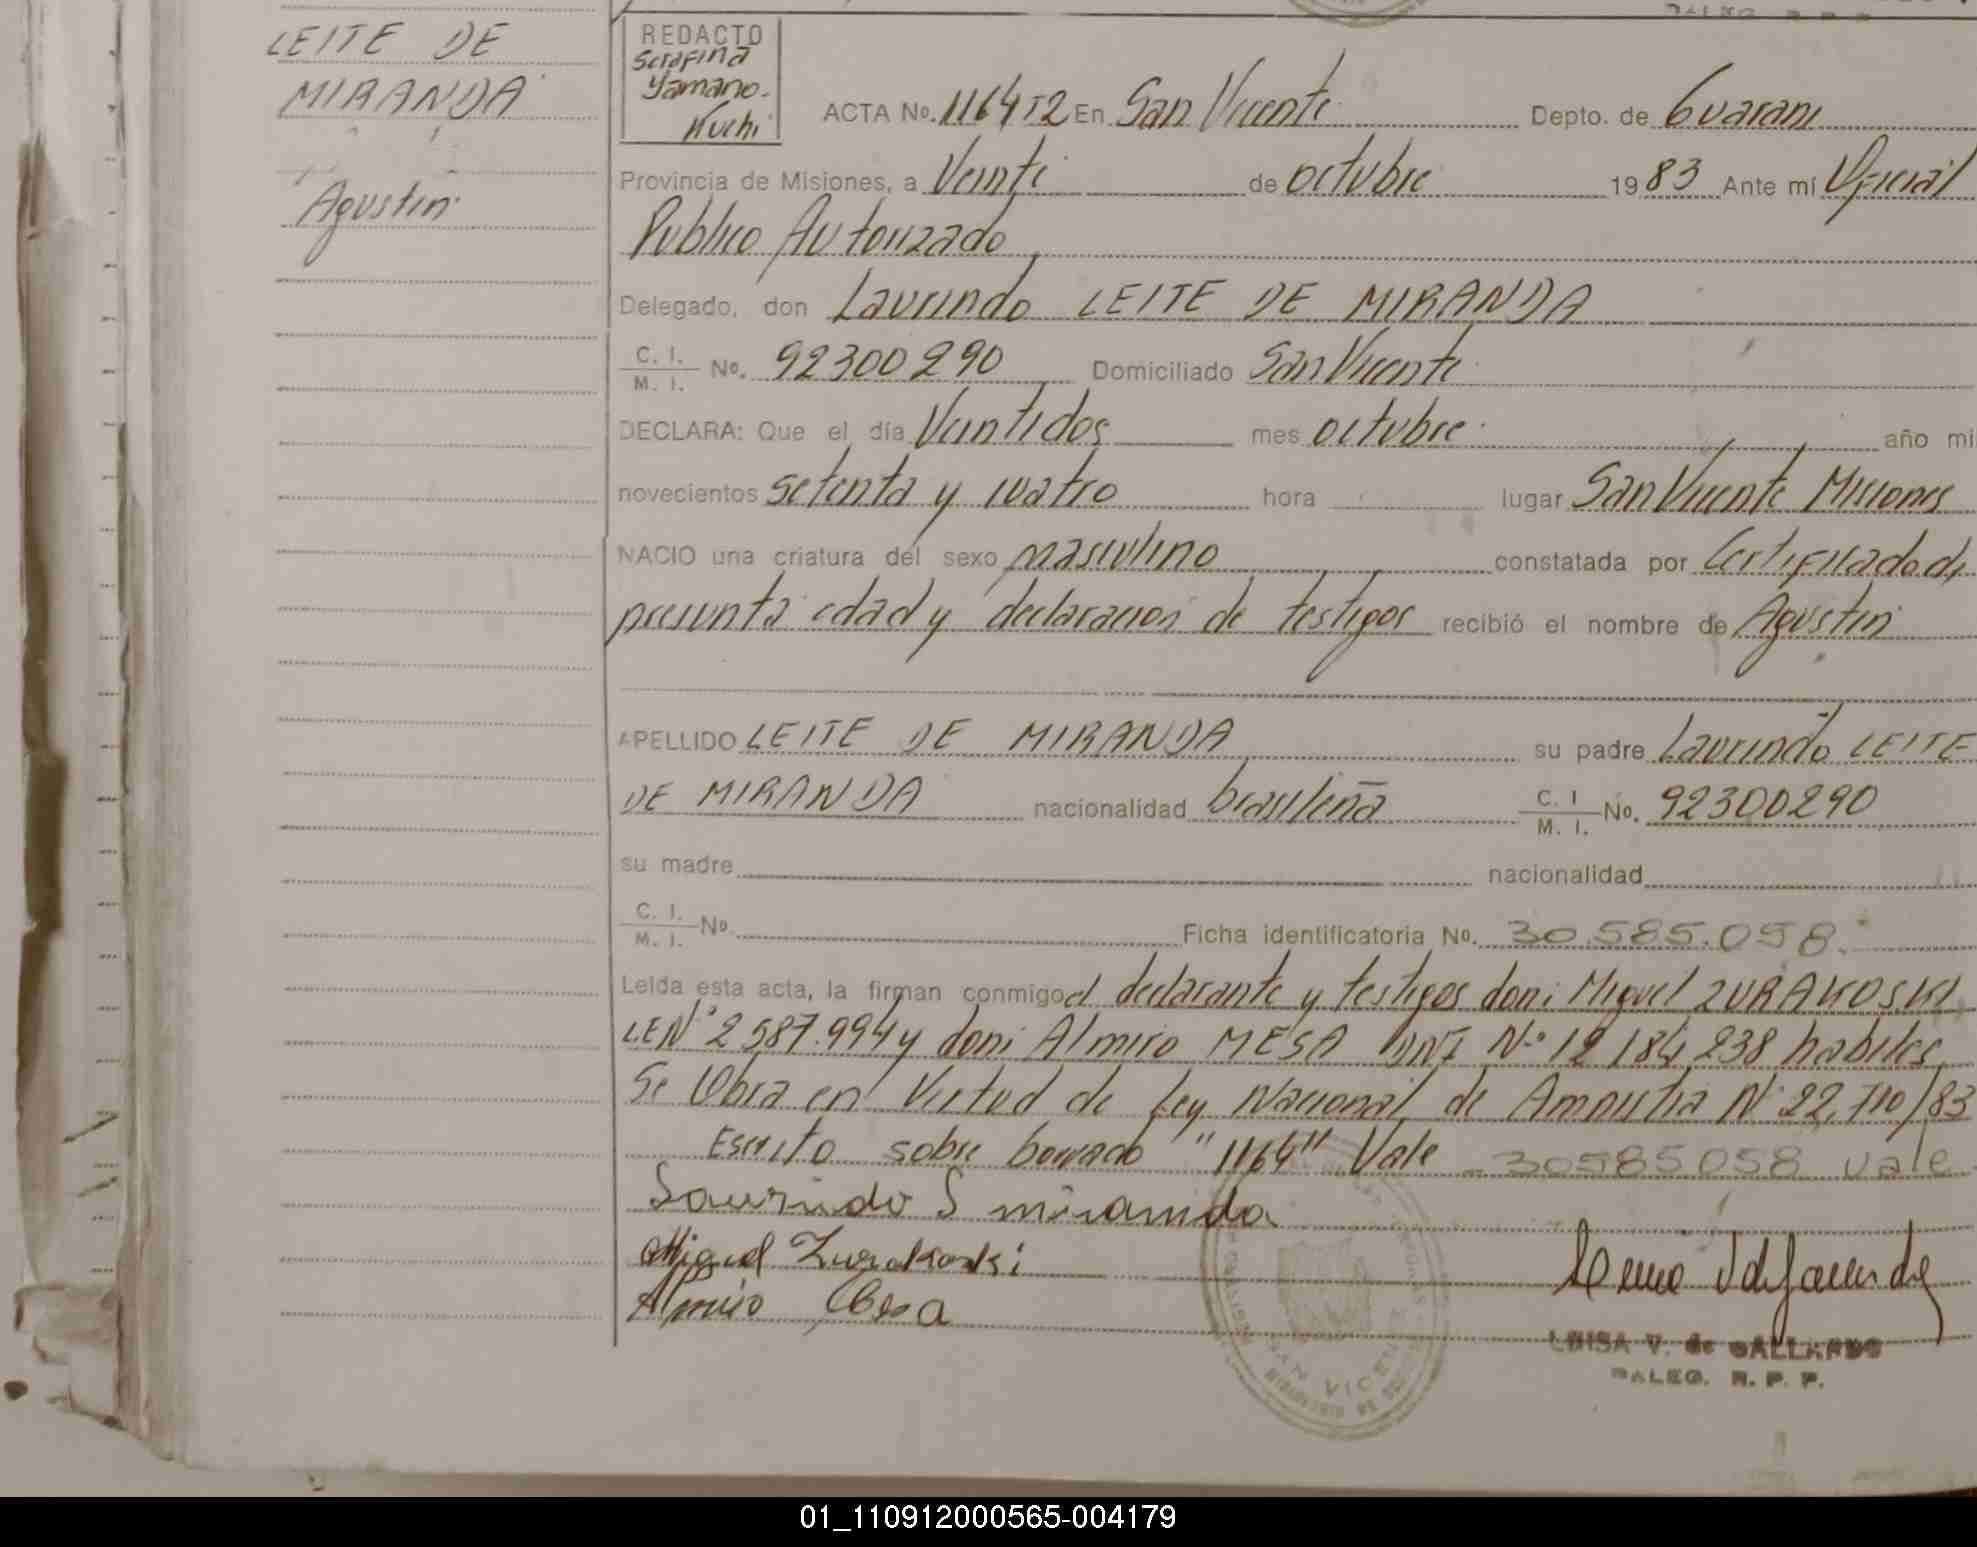 LEITE DE
MIRANDA
Agustin
REDACTO
Serafina
Yamano-
Kuchi
ACTA No. 1164 T2 En San Vicente Depto. de Guarani
Provincia de Misiones, a Veinte de octubre 1983 Ante mí Oficial
Publico Autorizado
Delegado, don Laurindo LEITE DE MIRANDA
C. I. / M. I. No. 92300290 Domiciliado San Vicente
DECLARA: Que el día Veintidos mes octubre año mi
novecientos setenta y cuatro hora lugar San Vicente Misiones
NACIO una criatura del sexo masculino constatada por Certificado de
presunta edad y declaracion de testigos recibió el nombre de Agustin
APELLIDO LEITE DE MIRANDA su padre Laurindo LEITE
DE MIRANDA nacionalidad brasileña C. I / M. I. No. 92300290
su madre nacionalidad
C. I. / M. I. No. Ficha identificatoria No. 30.585.058.
Leída esta acta, la firman conmigo el declarante y testigos don: Miguel ZURAKOSKI
LE Nº 2587.994 y don: Almiro MESA DNI Nº 12184238 habiles
Se labra en Virtud de Ley Nacional de Amnistia Nº 22.710/83
Escrito sobre borrado "1164" Vale - 30585058 vale
Laurindo L miranda
Miguel Zurakoski
Almiro
SAN VICENTE
LUISA V. de GALLARDO
DALEG. R. P. P.
01_110912000565-004179